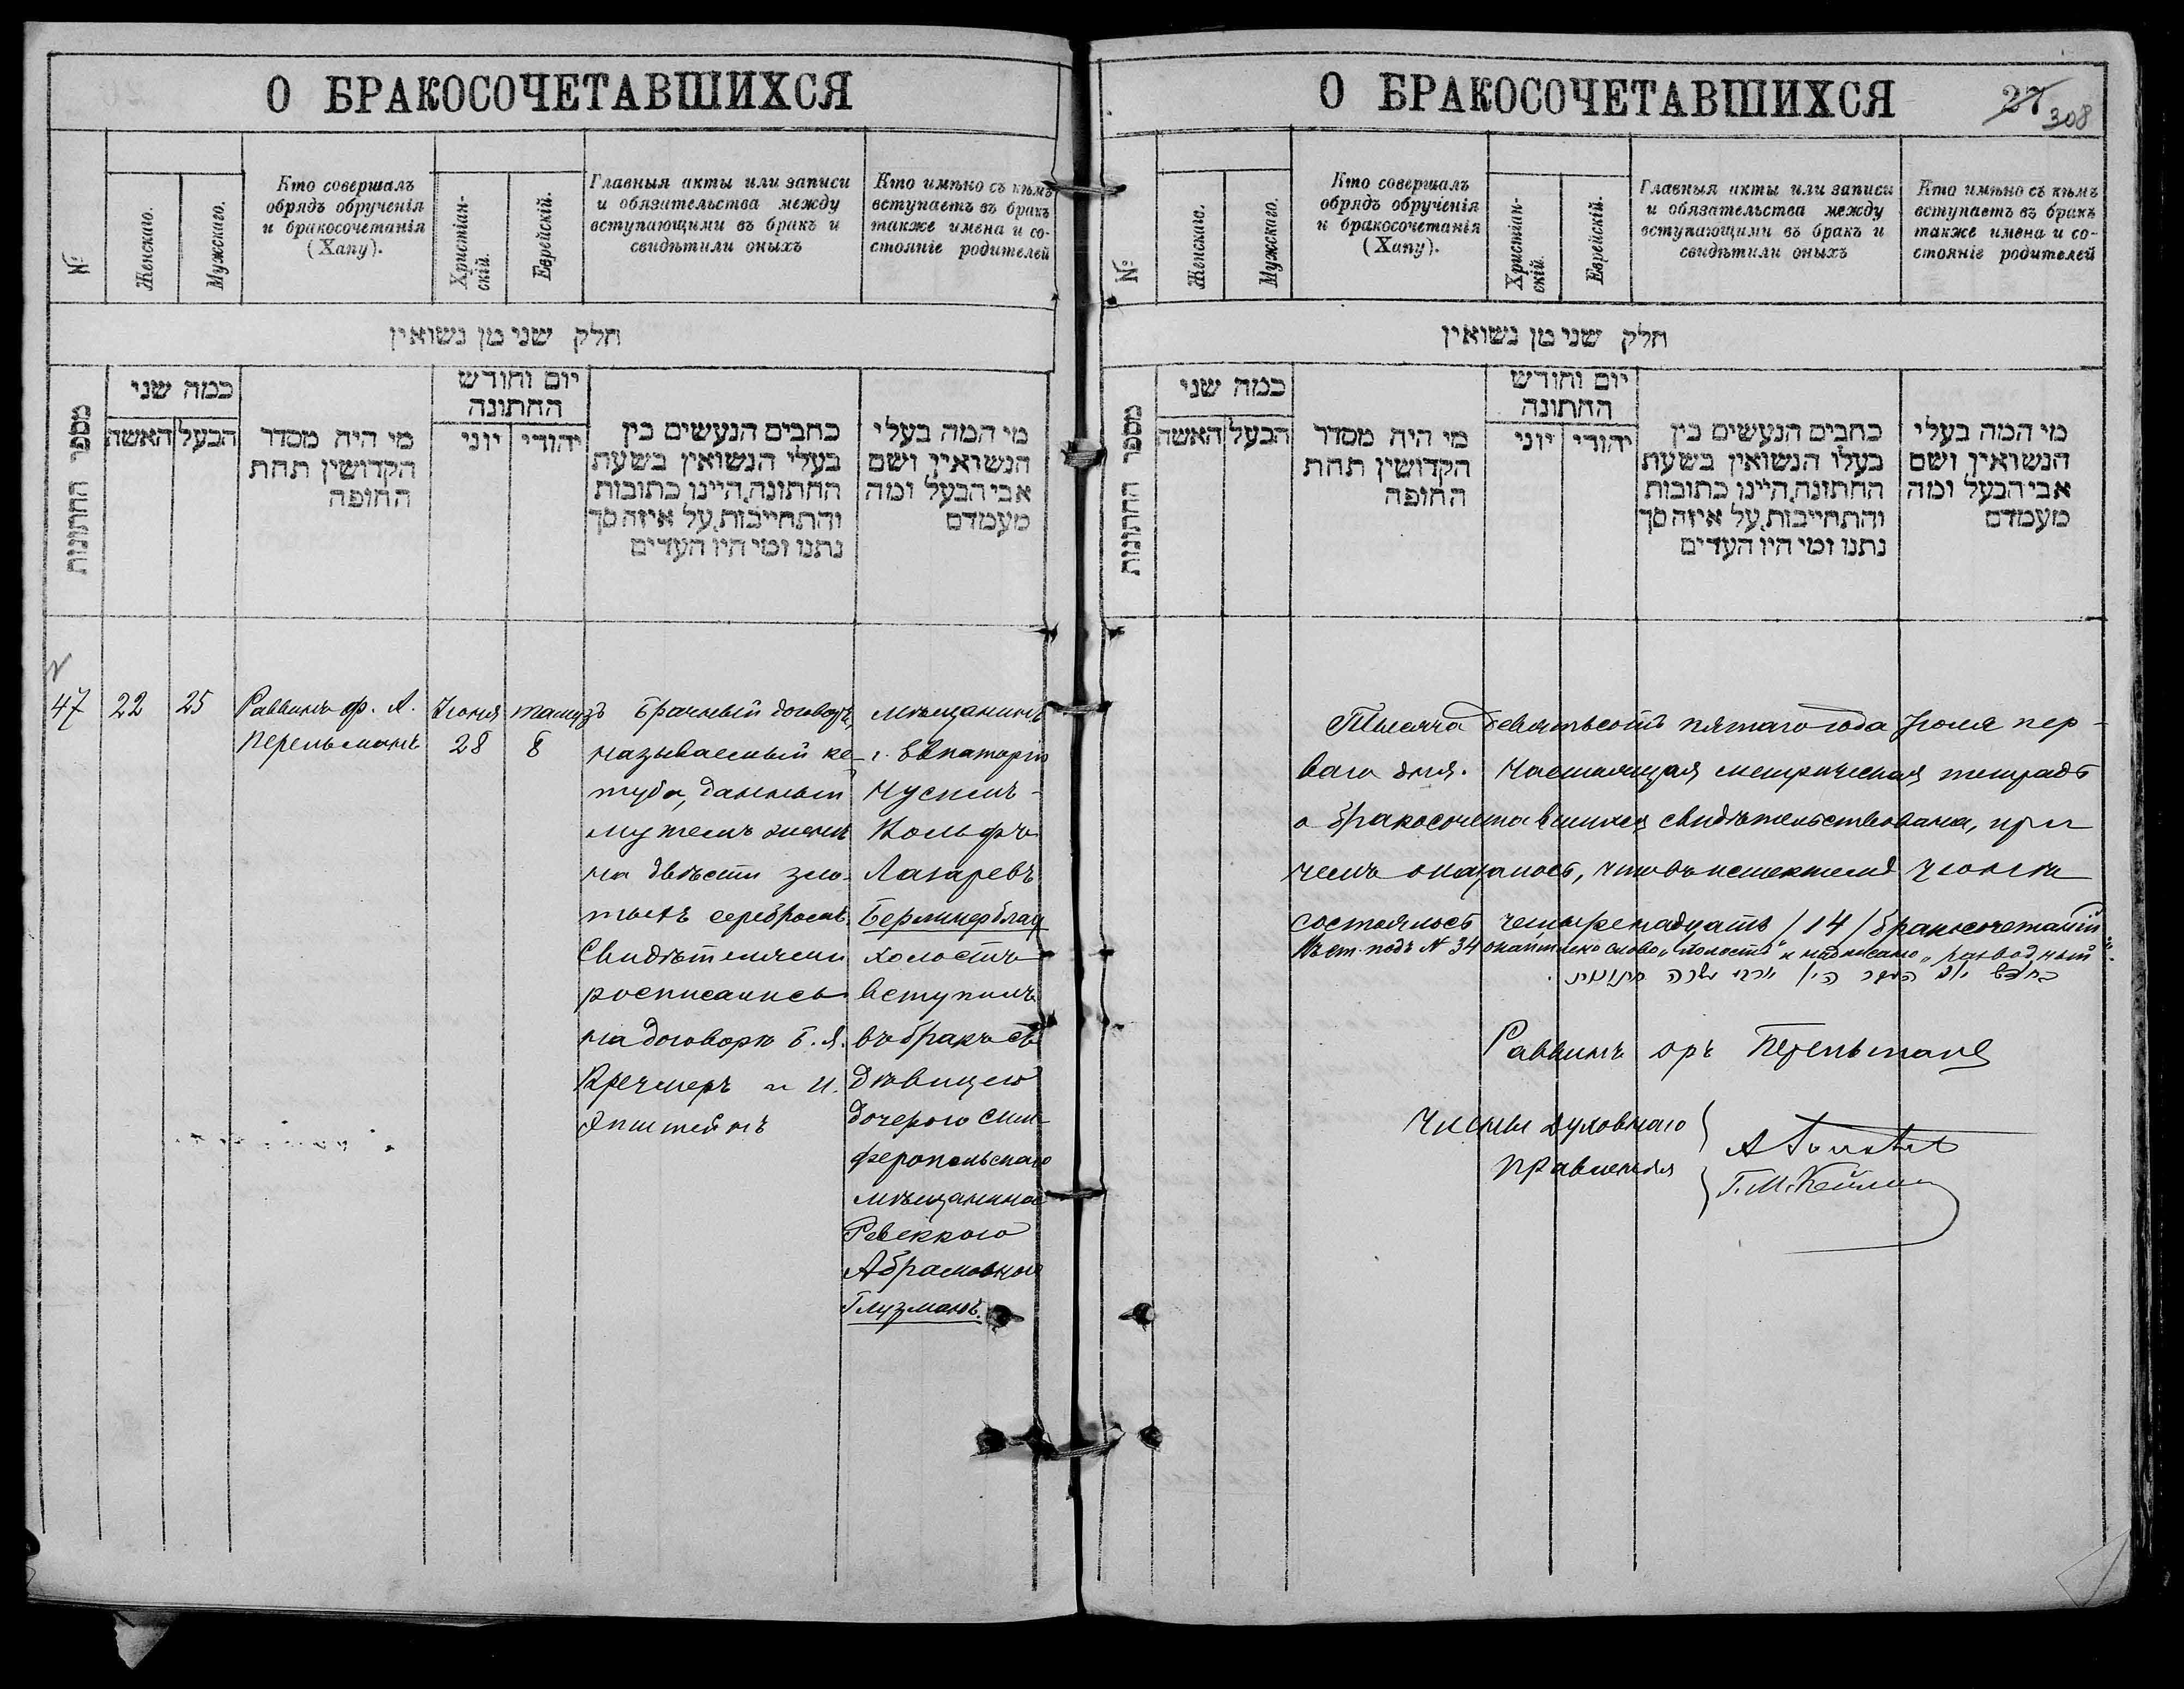 О БРАКОСОЧЕТАВШИХСЯ
№
Женскаго.
Мужскаго.
Кто совершалъ
обрядъ обрученія
и бракосочетанія
(Хапу).
Христіан-
скій.
Еврейскій.
Главныя акты или записи
и обязательства между
вступающими въ бракъ и
свидѣтили оныхъ
Кто имѣно съ кѣмъ
вступаетъ въ бракъ
также имѣна и со-
стояніе родителей
חלק שני מן נשואין
מספר החתונות
כמה שני
האשה
הבעל
מי היה מסדר
הקדושין תחת
החופה
יום וחודש
החתונה
יוני
יהודי
כתבים הנעשים בין
בעלי הנשואין בשעת
החתונה, היינו כתובות
והתחייבות, על איזה סך
נתנו ומי היו העדים
מי המה בעלי
הנשואין ושם
אבי הבעל ומה
מעמדם
47
22
25
Раввинъ ф. А.
Перельманъ
Іюня
28
тамузъ
8
брачный договоръ,
называемый ке-
туба, данный
мужемъ женѣ
на двѣсти зло-
тыхъ серебромъ.
Свидѣтелями
росписались
на договорѣ Б. Я.
Кречмеръ и И.
Эпштейнъ
Мѣщанинъ
г. Евпаторіи
Нусимъ-
Вольфъ
Лазаревъ
Берлинерблау
холостъ
вступилъ
въ бракъ съ
дѣвицею
дочерью Сим-
феропольскаго
мѣщанина
Ревеккою
Абрамовною
Глузманъ.
О БРАКОСОЧЕТАВШИХСЯ
27
308
№
Женскаго.
Мужскаго.
Кто совершалъ
обрядъ обрученія
и бракосочетанія
(Хапу).
Христіан-
скій.
Еврейскій.
Главныя акты или записи
и обязательства между
вступающими въ бракъ и
свидѣтили оныхъ
Кто имѣно съ кѣмъ
вступаетъ въ бракъ
также имѣна и со-
стояніе родителей
חלק שני מן נשואין
מספר החתונות
כמה שני
האשה
הבעל
מי היה מסדר
הקדושין תחת
החופה
יום וחודש
החתונה
יוני
יהודי
כתבים הנעשים בין
בעלי הנשואין בשעת
החתונה, היינו כתובות
והתחייבות, על איזה סך
נתנו ומי היו העדים
מי המה בעלי
הנשואין ושם
אבי הבעל ומה
מעמדם
Тысяча девятьсотъ пятаго года Іюля пер-
ваго дня. Настоящая метрическая тетрадь
о бракосочетавшихся свидѣтельствована, при
чемъ оказалось, что въ истекшемъ Іюнѣ
состоялось четырнадцать /14/ бракосочетаній
Въ ст. подъ № 34 слово „холостъ" и надписано „разводный"
Раввинъ Перельманъ
Члены Духовнаго
Правленія